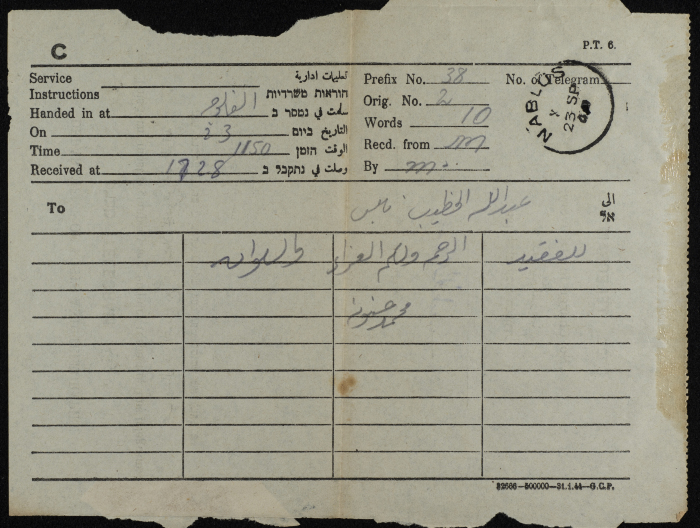 C
P.T. 6.
Service تعليمات ادارية
Instructions הוראות משרדיות
Handed in at الفالوجه سلمت في נמסר ב
On 23 التاريخ ביום
Time 1150 الوقت הזמן
Received at 1728 وصلت في נתקבל ב
Prefix No. 38 No. of Telegram
Orig. No. 2
Words 10
Recd. from m
By m
NABLUS
23 SP
To عبدالله الخطيب نابلس الى
אל
للفقيد الرحمه ولكم العزاء والسلوان
محمد حنونه
32566—500000—31.1.44—G.C.P.